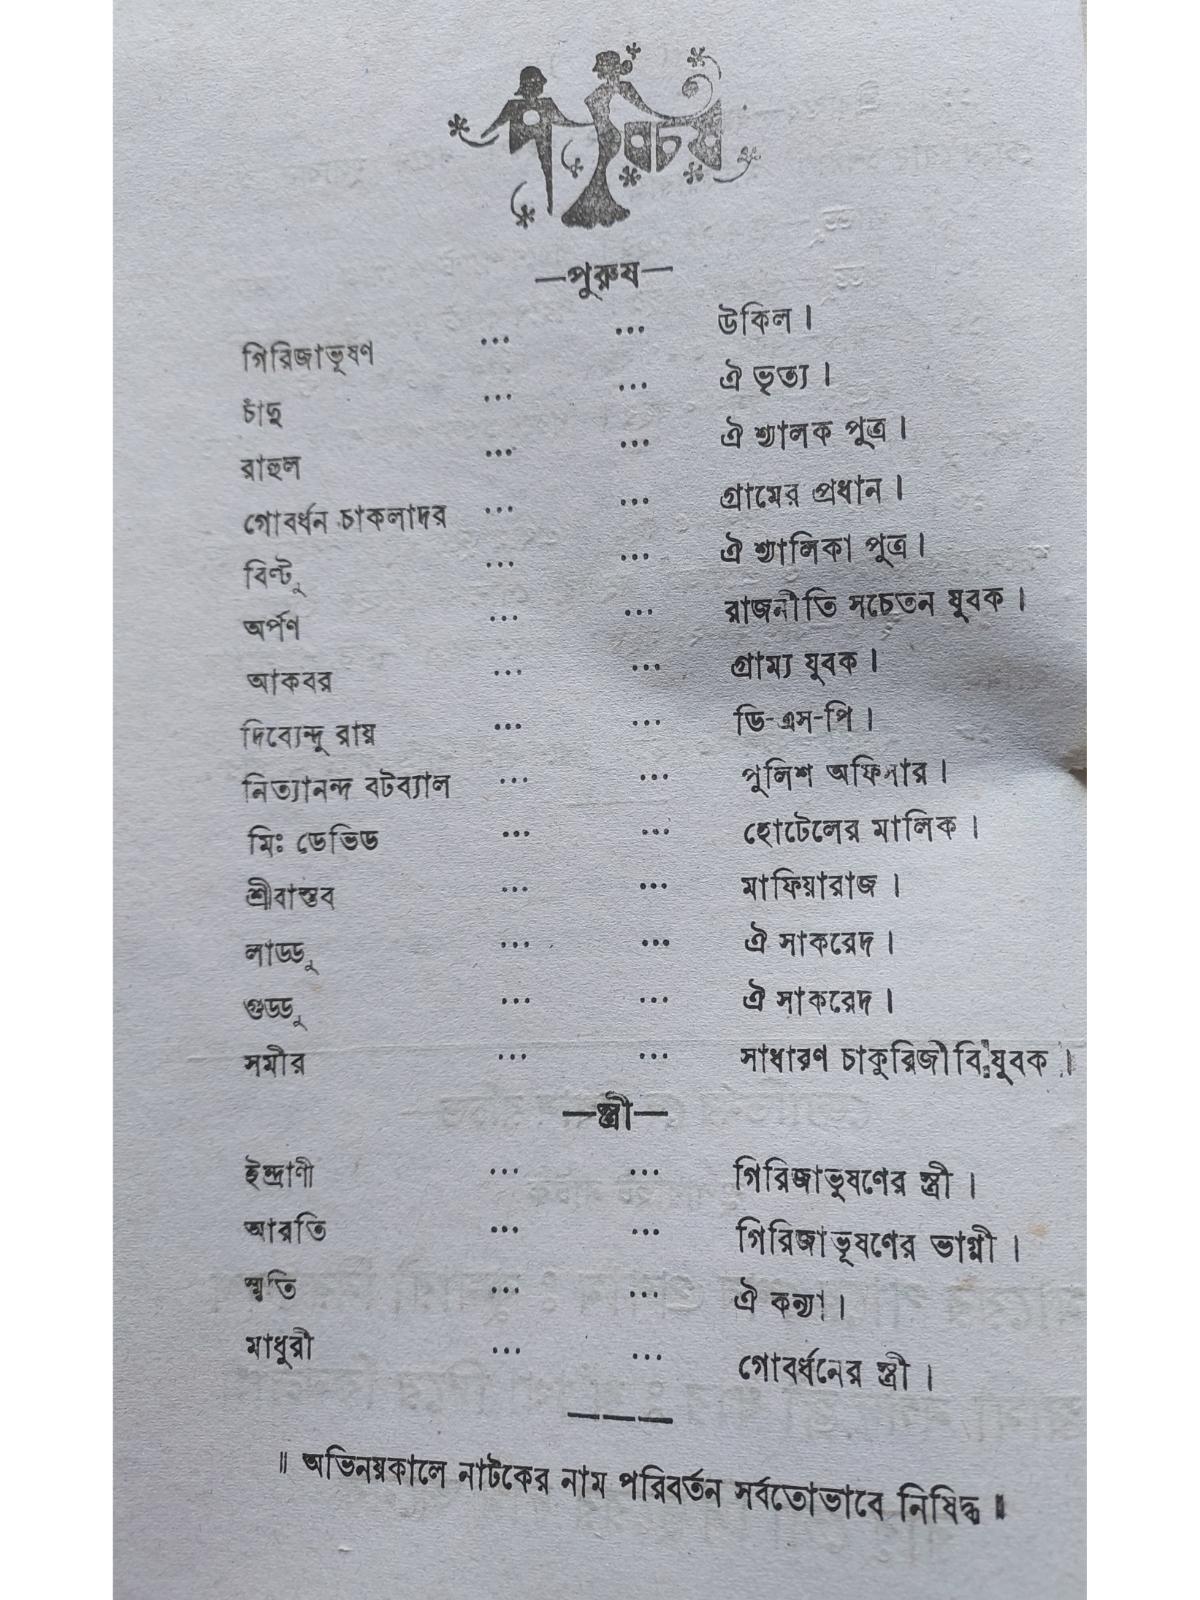 পরিচয়
—পুরুষ—
গিরিজাভূষণ ... ... উকিল।
চাঁদু ... ... ঐ ভৃত্য।
রাহুল ... ... ঐ শ্যালক পুত্র।
গোবর্ধন চাকলাদর ... ... গ্রামের প্রধান।
বিণ্টু ... ... ঐ শ্যালিকা পুত্র।
অর্পণ ... ... রাজনীতি সচেতন যুবক।
আকবর ... ... গ্রাম্য যুবক।
দিব্যেন্দু রায় ... ... ডি-এস-পি।
নিত্যানন্দ বটব্যাল ... ... পুলিশ অফিসার।
মিঃ ডেভিড ... ... হোটেলের মালিক।
শ্রীবাস্তব ... ... মাফিয়ারাজ।
লাড্ডু ... ... ঐ সাকরেদ।
গুড্ডু ... ... ঐ সাকরেদ।
সমীর ... ... সাধারণ চাকুরিজীবি যুবক।
—স্ত্রী—
ইন্দ্রাণী ... ... গিরিজাভূষণের স্ত্রী।
আরতি ... ... গিরিজাভূষণের ভাগ্নী।
স্মৃতি ... ... ঐ কন্যা।
মাধুরী ... ... গোবর্ধনের স্ত্রী।
———
॥ অভিনয়কালে নাটকের নাম পরিবর্তন সর্বতোভাবে নিষিদ্ধ ॥